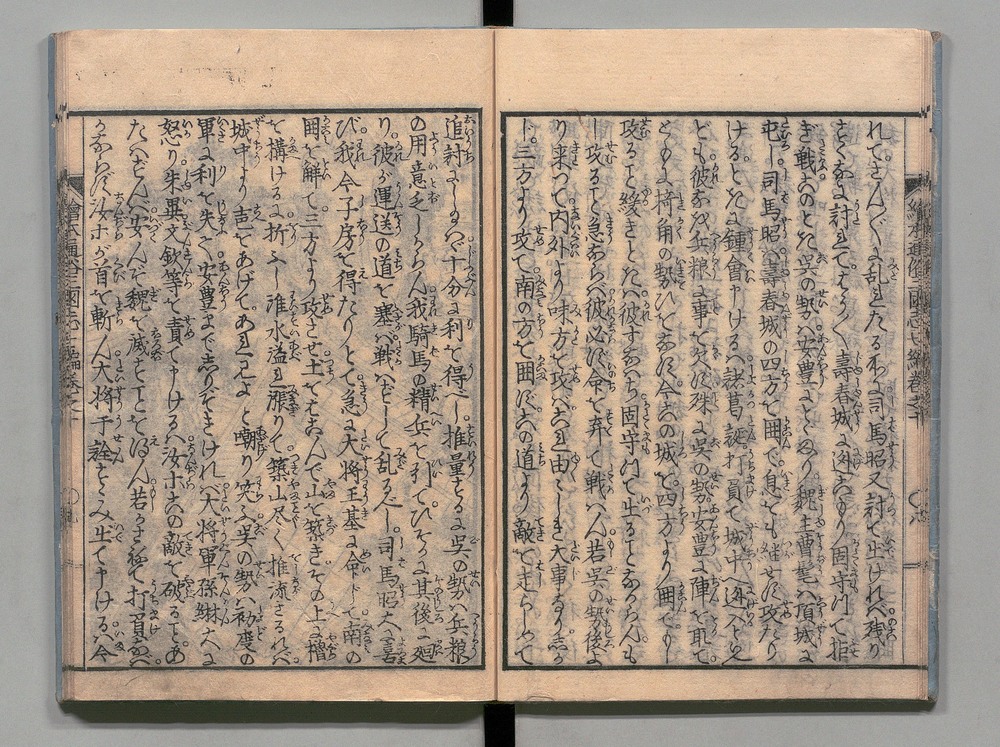 れてさん〲に乱れたる所に司馬昭又討て出けれバ残り
すくなに討れて。やう〳〵壽春城に逃こもり固守つて拒
き戦ふのとき呉の勢ハ安豊にとゞまり魏主曹髦ハ項城に
屯し司馬昭ハ壽春城の四方を囲で。息をも継せず攻たり
ける。ときに鍾會申けるハ諸葛誕打負て城中へ逃入といへ
ども。彼なほ兵粮に事を欠ず殊に呉の勢安豊に陣を取て
ともに掎角の勢ひをなす今この城を四方より囲で。もし
攻ること緩きときハ彼すなハち固守つて出ることなからん。も
し攻ること急ならバ彼必ず命を弃て戦ハん若呉の勢後よ
り来つて内外より味方を攻バこれ由〻しき大事なり。しか
し。三方より攻て南の方を囲ずこの道より敵を走らしめて
追討にしなバ十分に利を得べし。推量するに呉の勢ハ兵粮
の用意乏しからん我騎馬の精兵を引て。ひそかに其後に廻
り。彼が運送の道を塞バ戦ハずして乱るべし。司馬昭大に喜
び我今子房を得たりとて。急に大将王基に命じて南の
囲を解て三方より攻させ土をはこんで山を築きその上に櫓
を構けるに折ふし淮水溢れ漲りて。築山尽く推流されバ
城中より声をあげて。あれ見よと嘲り笑ふ呉の勢ハ初度の
軍に利を失て安豊まで志りぞきけれバ大将軍孫綝大に
怒り朱異文欽等を責て申けるハ汝ホこの敵を破ることあ
たハずんバ安んぞ魏を滅すことを得ん若かさ祢て打負なバ
かならず汝ホが首を斬ん大将于詮すゝみ出て申けるハ今
繪本通俗三國志七編巻之十
繪本通俗三國志七編巻之十